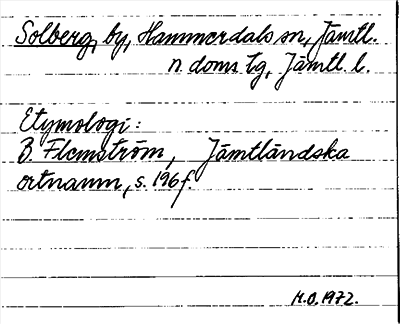 Solberg, by, Hammerdals sn, Jämtl.
n doms tg, Jämtl. l.
Etymologi:
B. Flemström, Jämtländska
ortnamn, s. 196f.
M.O. 1972.